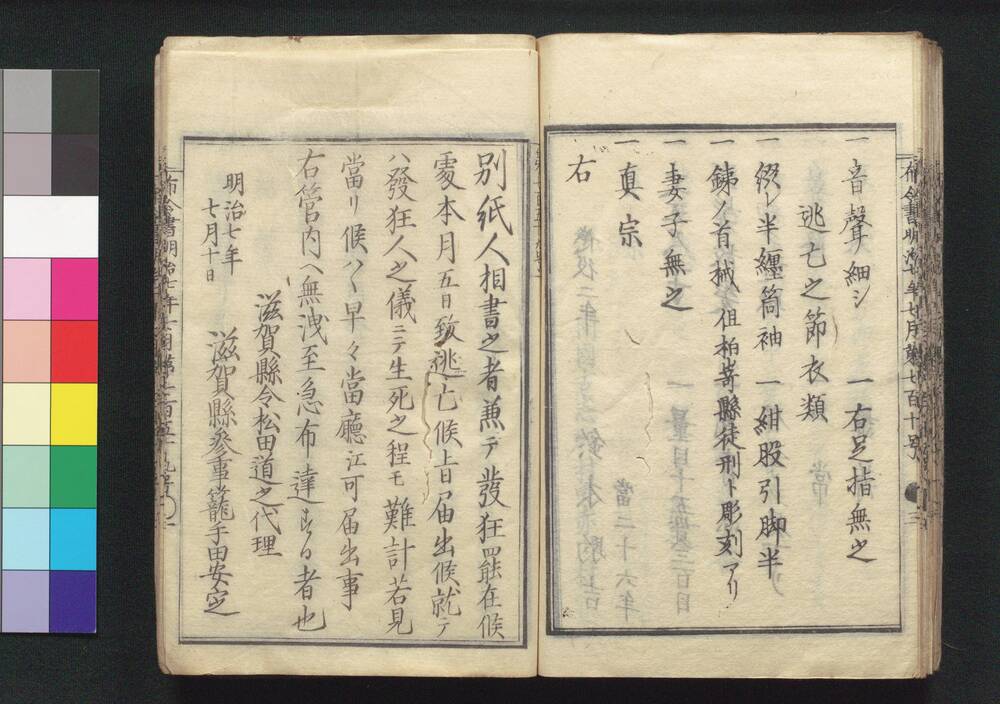 一 音聲細シ 一 右足指無之
逃亡之節衣類
一 綴レ半纏筒袖 一 紺股引脚半
一 銕ノ首械但柏崎縣徒刑ト彫刻アリ
一 妻子無之
一 真宗
右
別紙人相書之者兼テ發狂罷在候
處本月五日致逃亡候旨届出候就テ
ハ發狂人之儀ニテ生死之程モ難計若見
當リ候ハヽ早々當廳江可届出事
右管内ヘ無洩至急布達する者也
滋賀縣令松田道之代理
明治七年
七月十日
滋賀縣參事籠手田安定